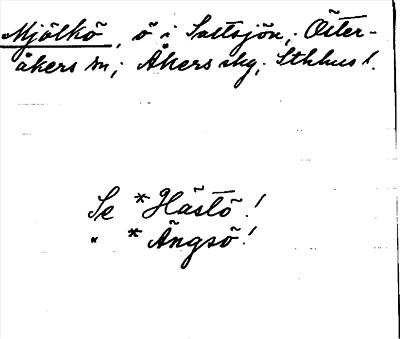 Mjölkö, ö i Saltsjön, Öster-
åkers sn; Åkers skg; Sthlms l.
Se *Hästö!
" *Ängsö!